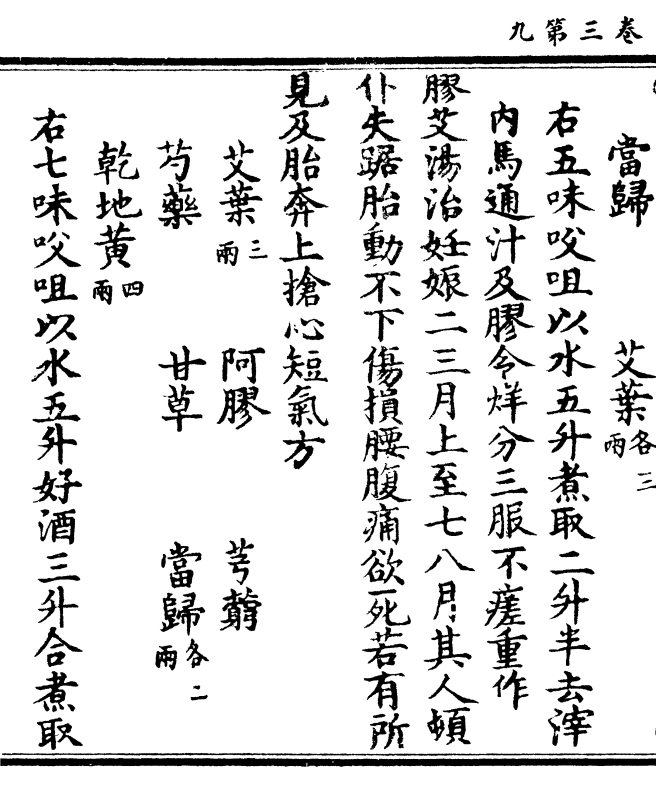 卷三第九
當歸 艾葉各三兩
右五味㕮咀以水五升煮取二升半去滓
內馬通汁及膠令烊分三服不瘥重作
膠艾湯治妊娠二三月上至七八月其人頓
仆失踞胎動不下傷損腰腹痛欲死若有所
見及胎奔上搶心短氣方
艾葉三兩 阿膠 芎藭
芍藥 甘草 當歸各二兩
乾地黃四兩
右七味㕮咀以水五升好酒三升合煮取